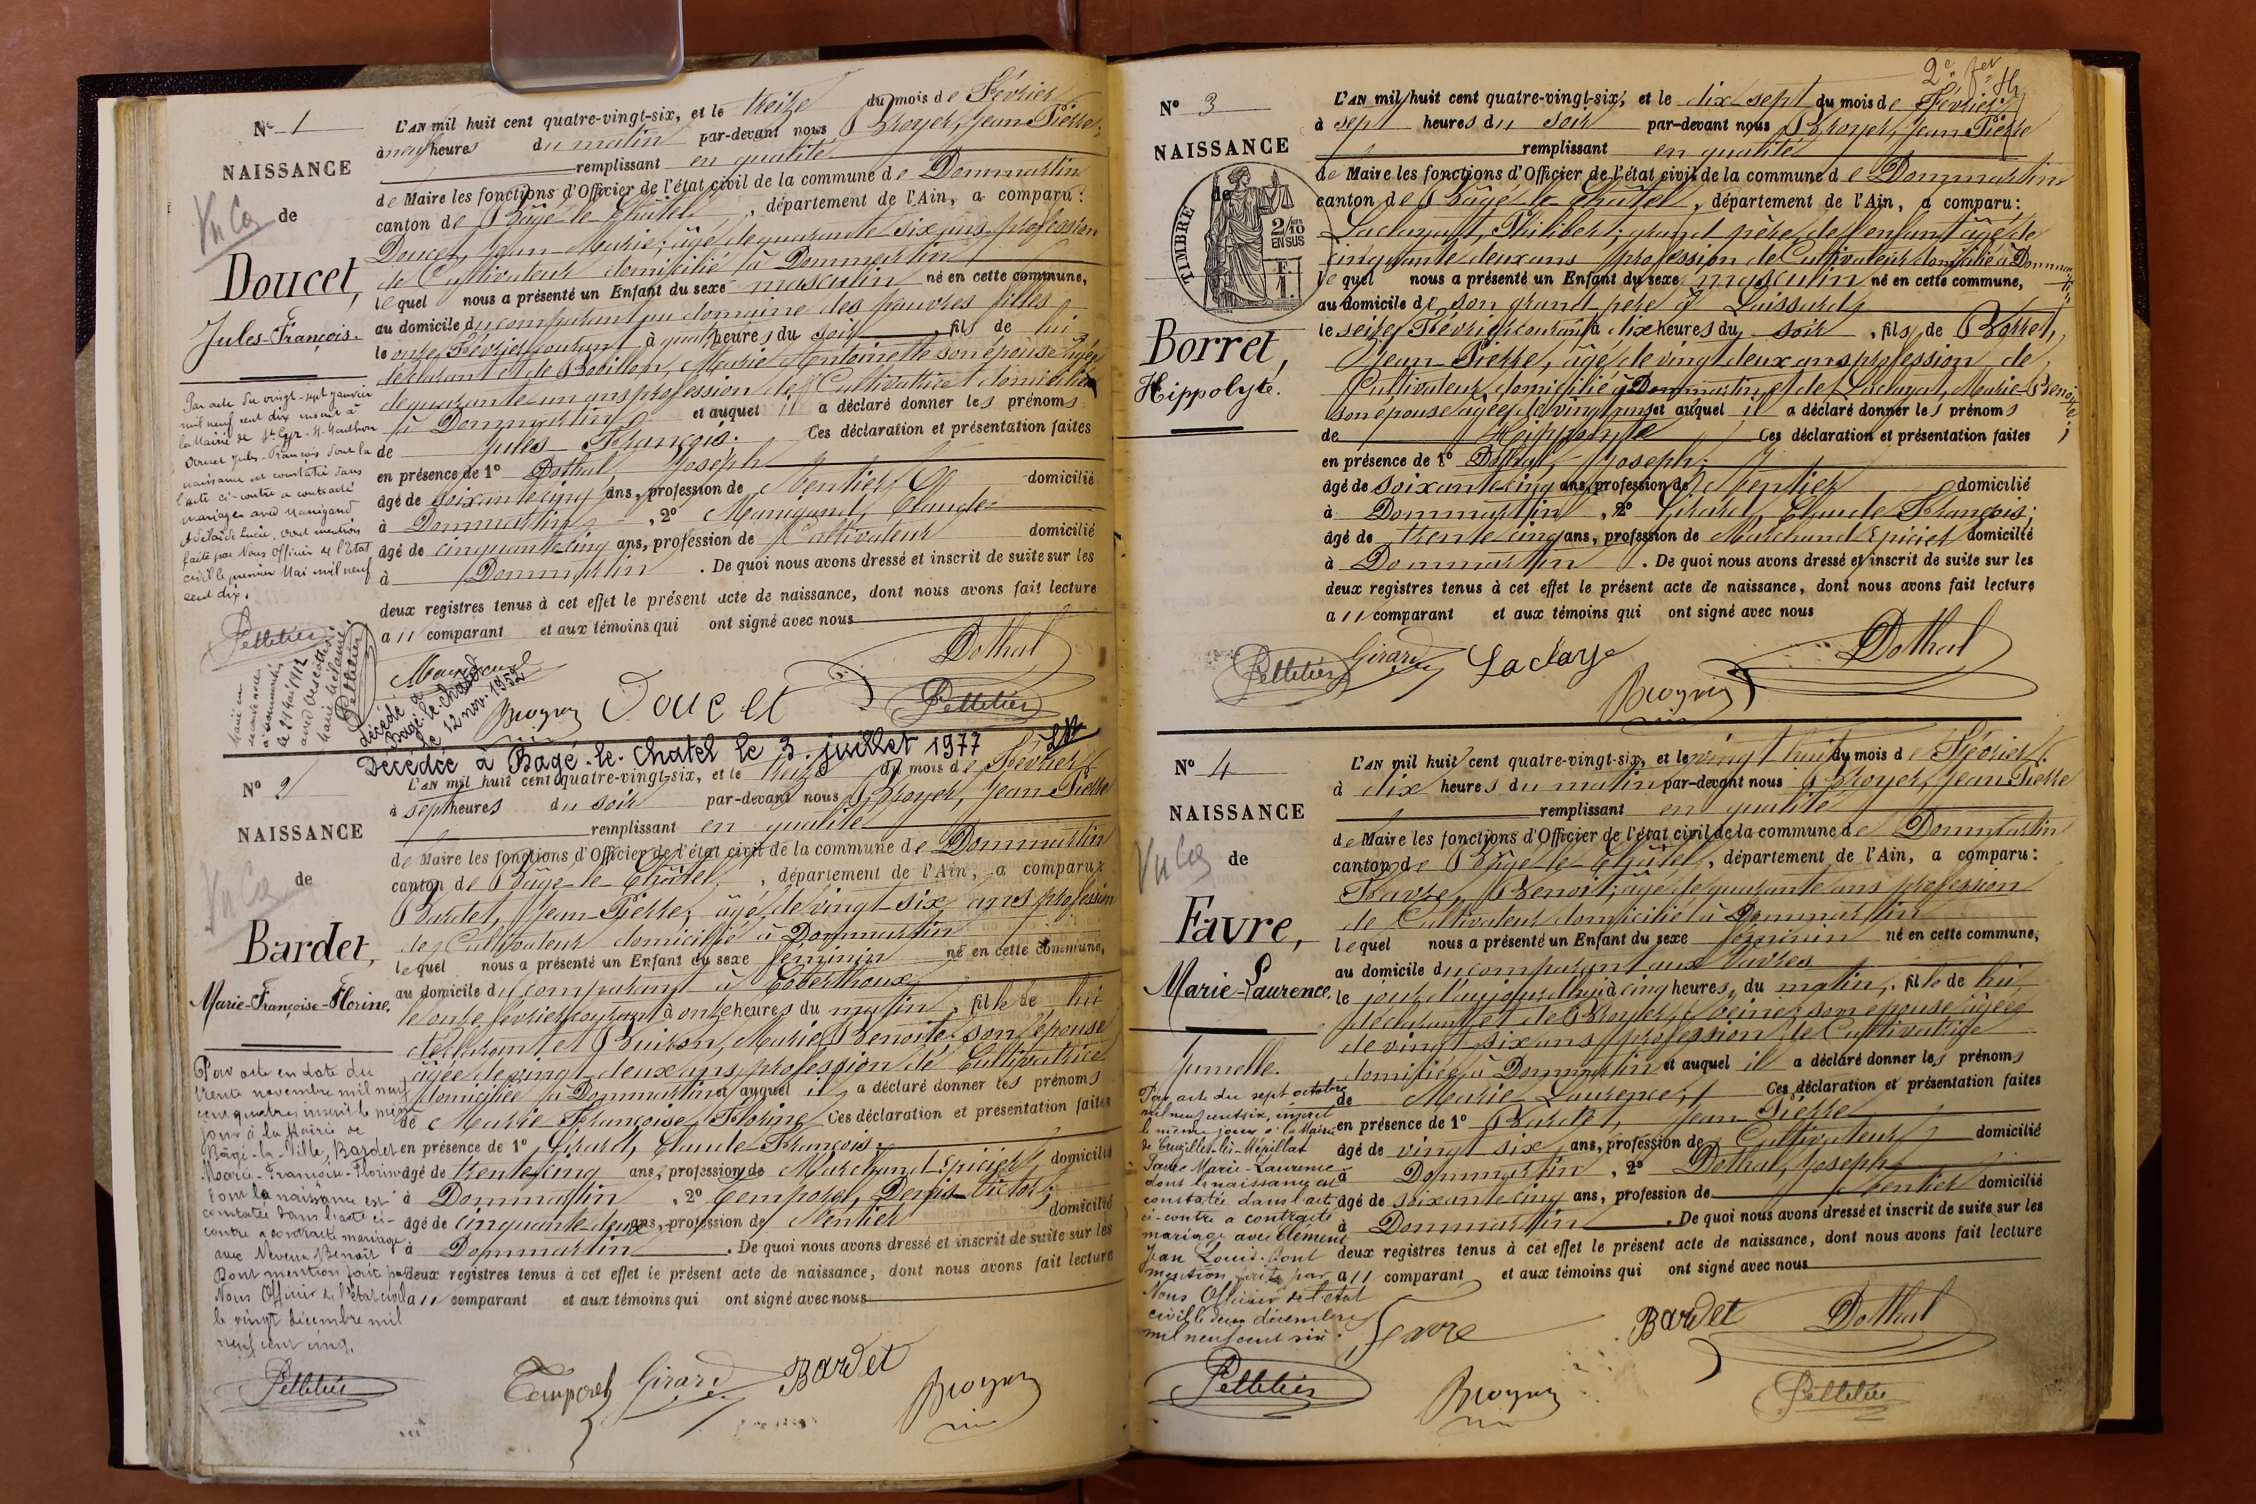 N° 1
NAISSANCE
de
Doucet,
Jules-François.
L'AN mil huit cent quatre-vingt-six, et le treize du mois de Février
à neuf heures du matin par-devant nous Broyer, Jean Pierre,
remplissant en qualité
de Maire les fonctions d'Officier de l'état civil de la commune de Dommartin
canton de Bâgé-le-Châtel, département de l'Ain, a comparu:
Doucet, Jean-Marie, âgé de quarante six ans profession
de Cultivateur domicilié à Dommartin
lequel nous a présenté un Enfant du sexe masculin né en cette commune,
au domicile du comparant au domaine des pauvres filles
le onze Février courant à quatre heures du soir, fils de lui
déclarant et de Robillon, Marie Antoinette son épouse âgée
de quarante un ans profession de Cultivatrice domiciliée
à Dommartin et auquel il a déclaré donner les prénoms
de Jules François. Ces déclaration et présentation faites
en présence de 1° Dothal, Joseph
âgé de soixante cinq ans, profession de Rentier domicilié
à Dommartin, 2° Manigand, Claude
âgé de cinquante cinq ans, profession de Cultivateur domicilié
à Dommartin. De quoi nous avons dressé et inscrit de suite sur les
deux registres tenus à cet effet le présent acte de naissance, dont nous avons fait lecture
au comparant et aux témoins qui ont signé avec nous
Par acte du vingt-sept janvier
mil neuf cent dix inscrit à
la Mairie de St Cyr-s-Menthon
Doucet Jules-François dont la
naissance est constatée dans
l'acte ci-contre a contracté
mariage avec Manigand
Adélaïde Lucie. Dont mention
faite par Nous Officier de l'Etat
civil le premier Mai mil neuf
cent dix.
Pelletier
Marié en
à Dommartin
le 21 Mai 1912
avec Descottes
Marie Mélanie.
Pelletier
Décédé à
Bâgé-le-Chatel
le 12 nov. 1952
Manigand
Broyer
Doucet
Dothal
Pelletier
Décédée à Bâgé-le-Chatel le 3 juillet 1977
N° 2
NAISSANCE
de
Bardet,
Marie-Françoise-Florine.
L'AN mil huit cent quatre-vingt-six, et le treize du mois de Février
à sept heures du soir par-devant nous Broyer, Jean Pierre
remplissant en qualité
de Maire les fonctions d'Officier de l'état civil de la commune de Dommartin
canton de Bâgé-le-Châtel, département de l'Ain, a comparu:
Bardet, Jean Pierre, âgé de vingt-six ans profession
de Cultivateur domicilié à Dommartin
lequel nous a présenté un Enfant du sexe féminin né en cette commune,
au domicile du comparant à Coberthoux
le onze février courant à onze heures du matin, fille de lui
déclarant et Buiron, Marie Benoite son épouse
âgée de vingt deux ans profession de Cultivatrice
domiciliée à Dommartin et auquel il a déclaré donner les prénoms
de Marie Françoise Florine Ces déclaration et présentation faites
en présence de 1° Girard, Claude François
âgé de trente cinq ans, profession de Marchand Epicier domicilié
à Dommartin, 2° Temporal, Denis Victor
âgé de cinquante deux ans, profession de Rentier domicilié
à Dommartin. De quoi nous avons dressé et inscrit de suite sur les
deux registres tenus à cet effet le présent acte de naissance, dont nous avons fait lecture
au comparant et aux témoins qui ont signé avec nous
Par acte en date du
trente novembre mil neuf
cent quatre, inscrit le même
jour à la Mairie de
Bâgé-la-Ville, Bardet
Marie-Françoise-Florine
dont la naissance est
constatée dans l'acte ci-
contre a contracté mariage
avec Neveux Benoît
Dont mention faite par
Nous Officier de l'état civil
le vingt décembre mil
neuf cent cinq.
Pelletier
Temporal
Girard
Bardet
Broyer
2e fer
N° 3
NAISSANCE
de
TIMBRE
2/10
EN SUS
Borret,
Hippolyte.
L'AN mil huit cent quatre-vingt-six, et le dix sept du mois de Février
à sept heures du soir par-devant nous Broyer, Jean Pierre
remplissant en qualité
de Maire les fonctions d'Officier de l'état civil de la commune de Dommartin
canton de Bâgé-le-Châtel, département de l'Ain, a comparu:
Laclayat, Philibert, grand père de l'enfant âgé de
cinquante deux ans profession de Cultivateur domicilié à Dommartin
lequel nous a présenté un Enfant du sexe masculin né en cette commune,
au domicile de son grand père à Loissard
le seize Février courant à dix heures du soir, fils de Borret,
Jean-Pierre, âgé de vingt deux ans profession de
Cultivateur domicilié à Dommartin et de Laclayat, Marie Benoite
son épouse âgée de vingt ans et auquel il a déclaré donner les prénoms
de Hippolyte Ces déclaration et présentation faites
en présence de 1° Dothal, Joseph
âgé de soixante cinq ans, profession de Rentier domicilié
à Dommartin, 2° Girard, Claude François
âgé de trente cinq ans, profession de Marchand Epicier domicilié
à Dommartin. De quoi nous avons dressé et inscrit de suite sur les
deux registres tenus à cet effet le présent acte de naissance, dont nous avons fait lecture
au comparant et aux témoins qui ont signé avec nous
Pelletier
Girard
Laclaye
Broyer
Dothal
N° 4
NAISSANCE
de
Favre,
Marie-Laurence.
Jumelle.
L'AN mil huit cent quatre-vingt-six, et le vingt huit du mois de Février
à dix heures du matin par-devant nous Broyer, Jean Pierre
remplissant en qualité
de Maire les fonctions d'Officier de l'état civil de la commune de Dommartin
canton de Bâgé-le-Châtel, département de l'Ain, a comparu:
Favre, Benoit, âgé de quarante ans profession
de Cultivateur domicilié à Dommartin
lequel nous a présenté un Enfant du sexe féminin né en cette commune,
au domicile du comparant aux Vavres
le jour d'aujourd'hui à cinq heures du matin, fille de lui
déclarant et de Broyer, Reine son épouse âgée
de vingt six ans profession de Cultivatrice
domiciliée à Dommartin et auquel il a déclaré donner les prénoms
de Marie Laurence Ces déclaration et présentation faites
en présence de 1° Bardet, Jean Pierre
âgé de vingt six ans, profession de Cultivateur domicilié
à Dommartin, 2° Dothal, Joseph
âgé de soixante cinq ans, profession de Rentier domicilié
à Dommartin. De quoi nous avons dressé et inscrit de suite sur les
deux registres tenus à cet effet le présent acte de naissance, dont nous avons fait lecture
au comparant et aux témoins qui ont signé avec nous
Par acte du sept octobre
mil neuf cent six, inscrit
le même jour à la Mairie
de Cruzilles-lès-Mépillat
Favre Marie-Laurence
dont la naissance est
constatée dans l'acte
ci-contre a contracté
mariage avec Clément
Jean Louis. Dont
mention faite par
Nous Officier de l'état
civil le deux décembre
mil neuf cent six.
Pelletier
Favre
Bardet
Dothal
Broyer
Pelletier